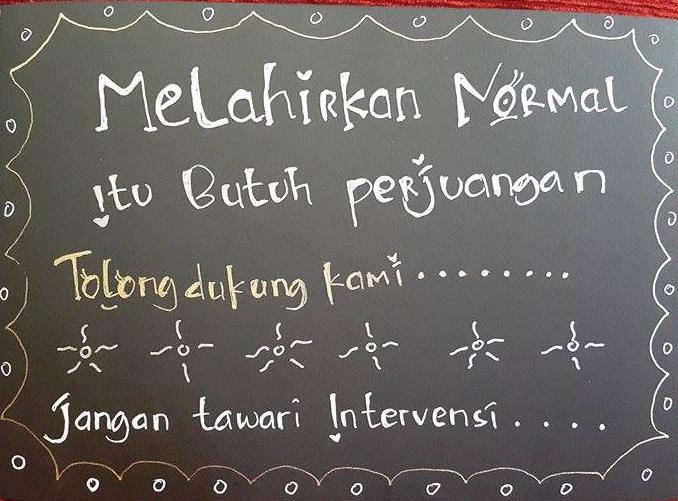 Melahirkan Normal
itu Butuh perjuangan
Tolong dukung kami.........
Jangan tawari Intervensi....